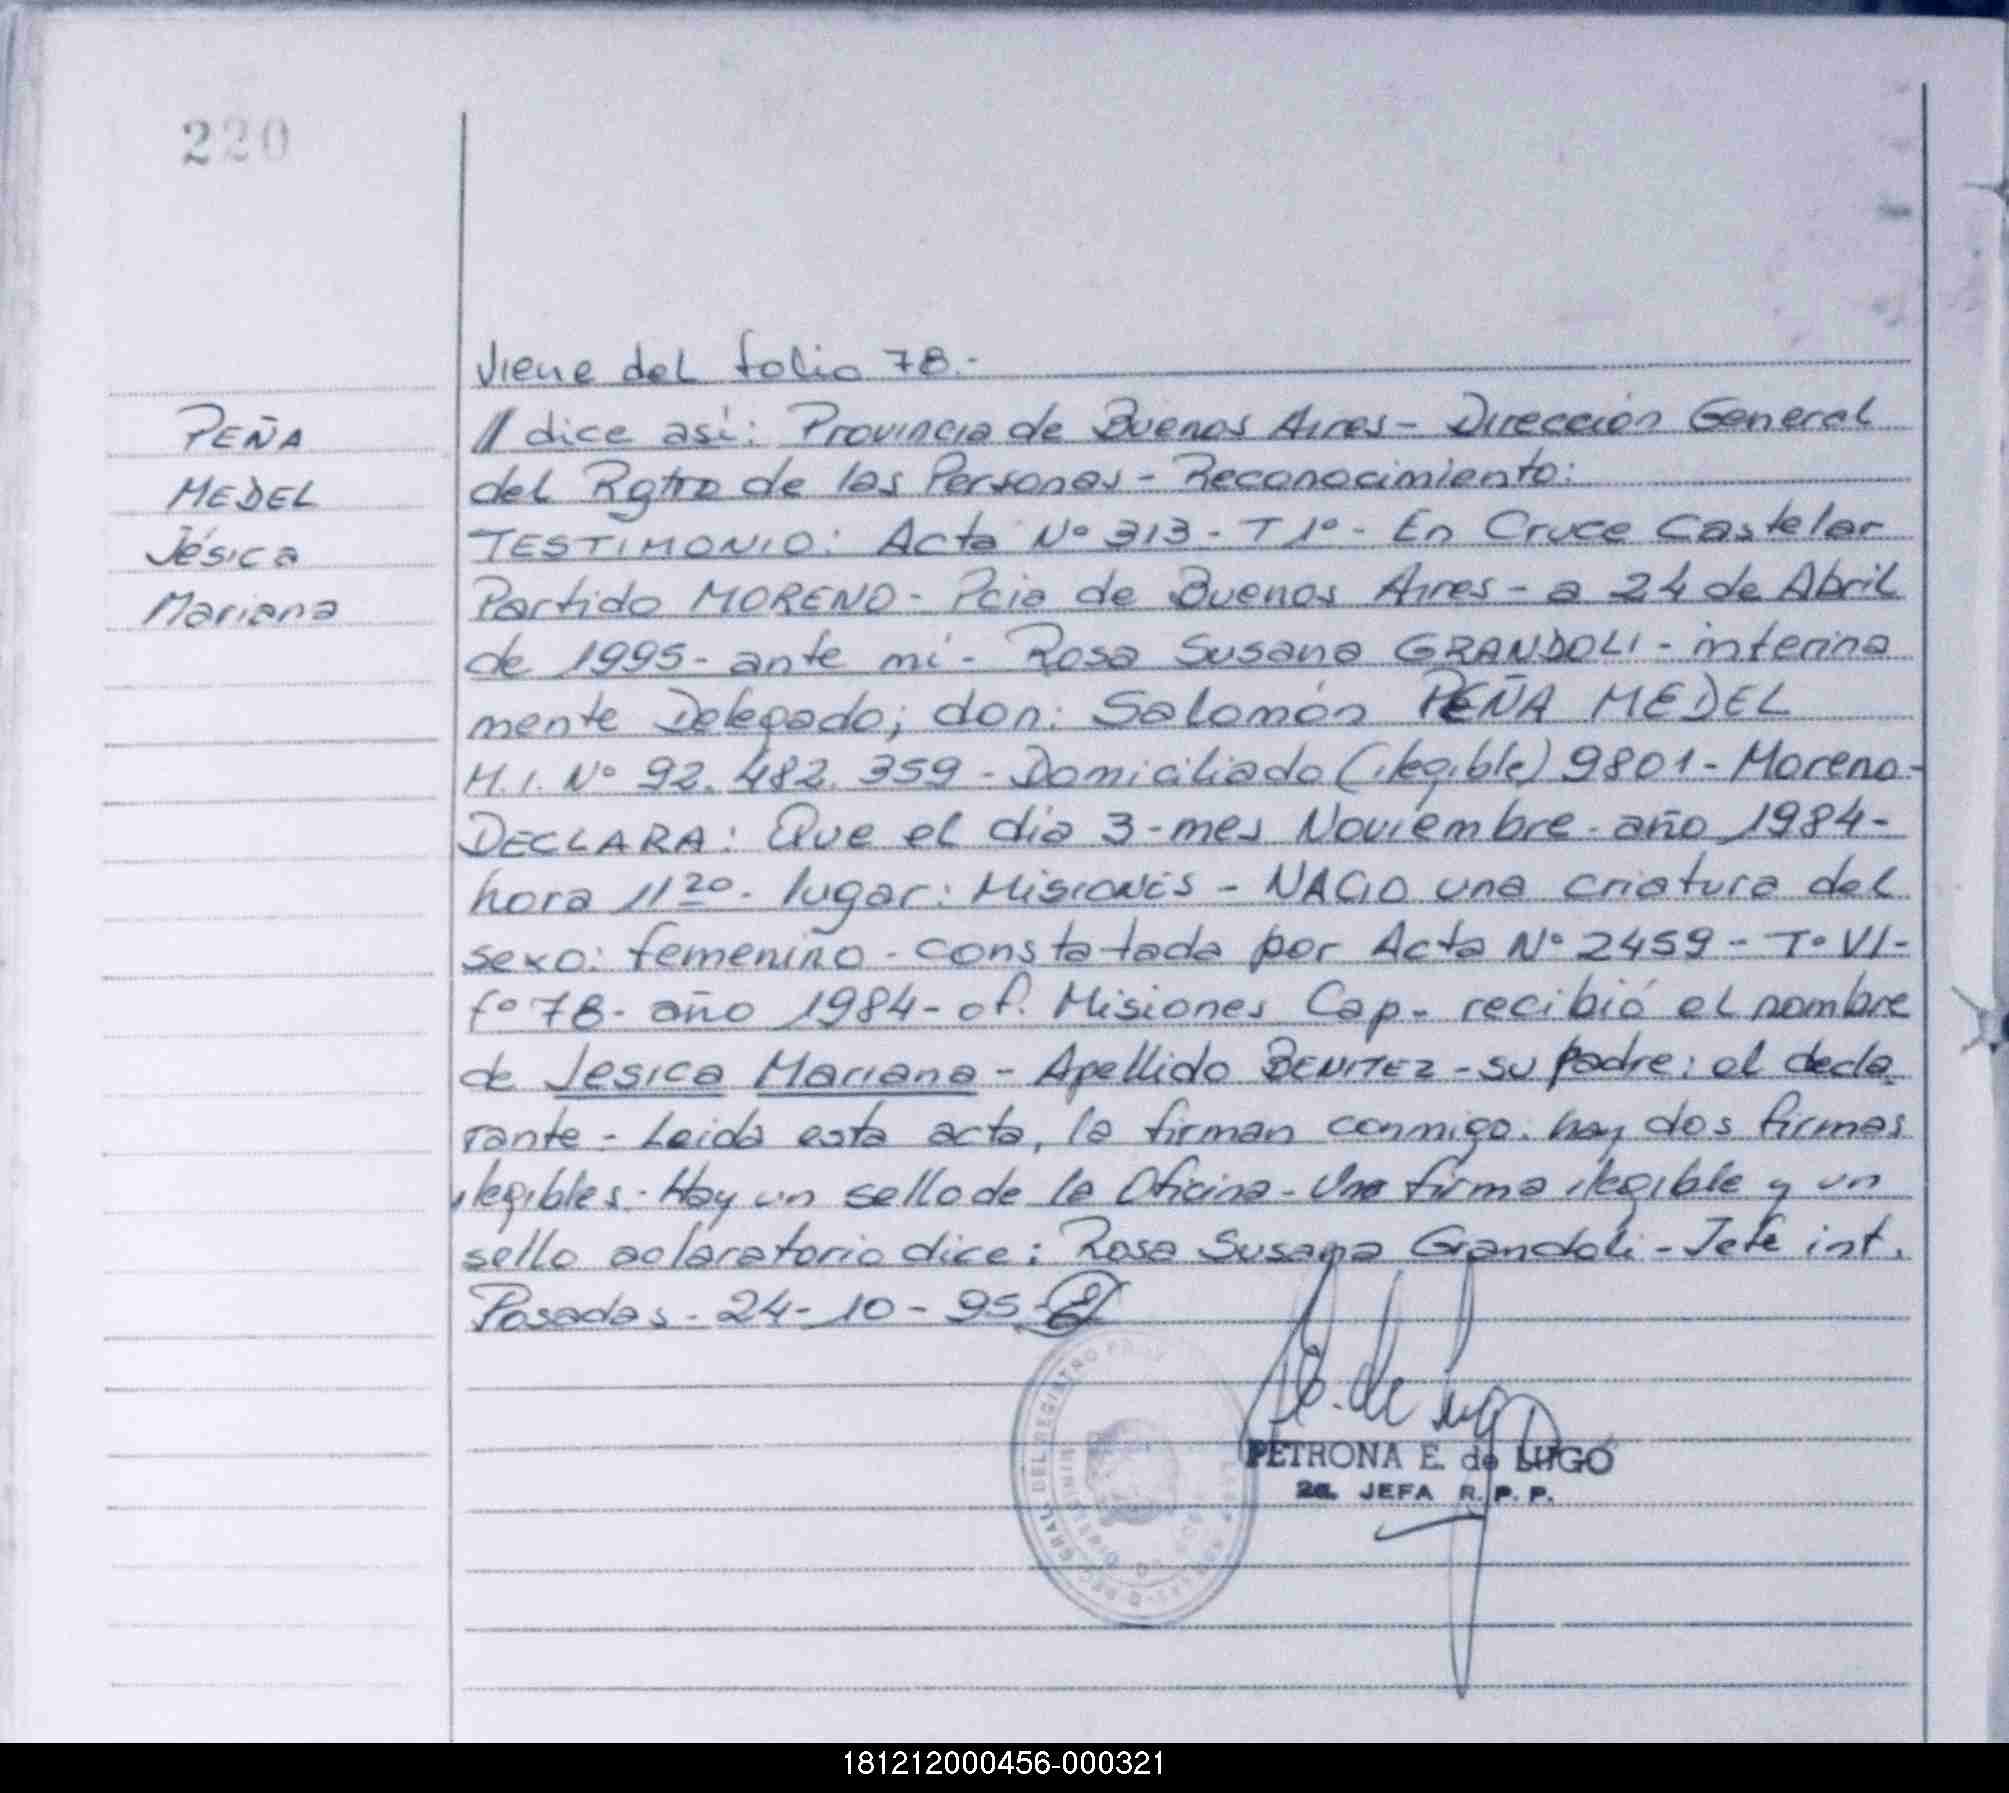 220
Viene del folio 78.-
PEÑA
MEDEL
Jésica
Mariana
// dice así: Provincia de Buenos Aires - Dirección General
del Rgtro de las Personas - Reconocimiento:
TESTIMONIO: Acta Nº 313 - T 1º - En Cruce Castelar
Partido MORENO - Pcia de Buenos Aires - a 24 de Abril
de 1995 - ante mí - Rosa Susana GRANDOLI - interina
mente Delegado; don: Salomón PEÑA MEDEL
M.I. Nº 92.482.359 - Domiciliado (ilegible) 9801 - Moreno -
DECLARA: Que el dia 3 - mes Noviembre - año 1984 -
hora 11 20 - lugar: Misiones - NACIO una criatura del
sexo: femenino - constatada por Acta Nº 2459 - Tº VI -
fº 78 - año 1984 - of. Misiones Cap - recibió el nombre
de Jesica Mariana - Apellido BENITEZ - su padre: el decla
rante - Leida esta acta, la firman conmigo. hay dos firmas
ilegibles. Hay un sello de la Oficina - Una firma ilegible y un
sello aclaratorio dice: Rosa Susana Grandoli - Jefe int.
Posadas - 24 - 10 - 95 -
DEL REGISTRO
PETRONA E. de LUGO
2a. JEFA R.P.P.
181212000456-000321